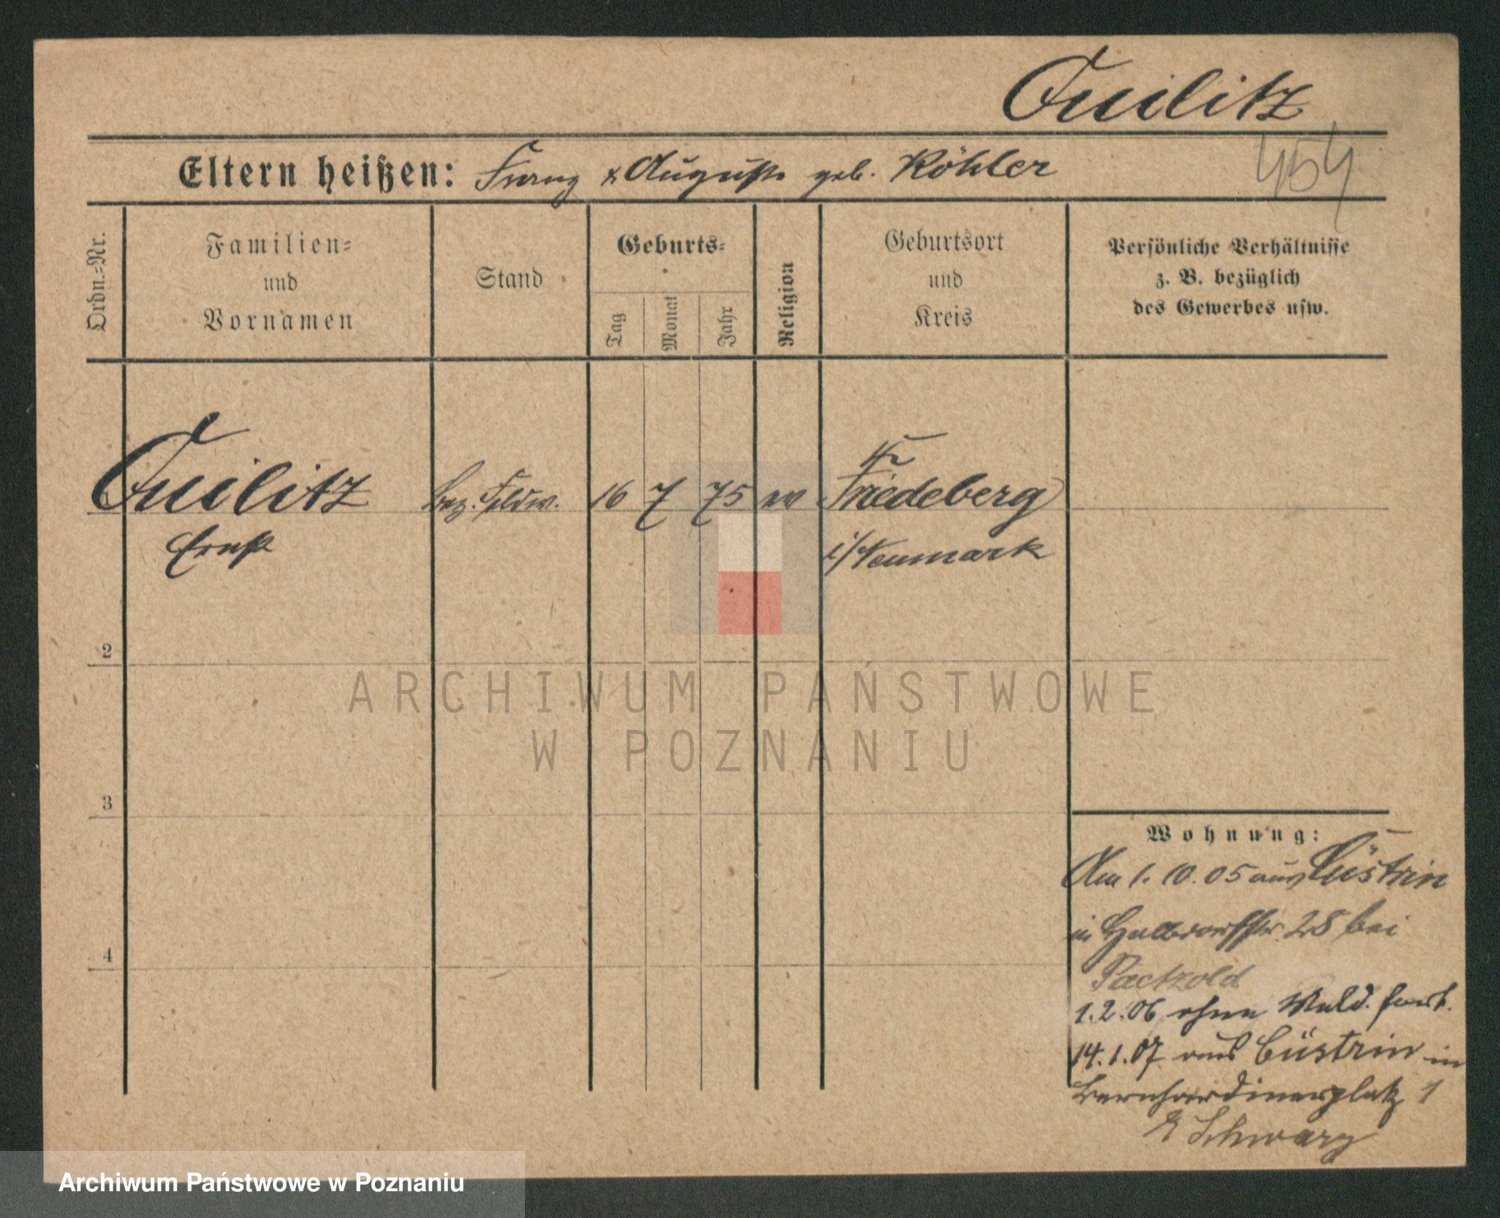 Quilitz
454
Eltern heißen: Franz & Auguste geb. Köhler
Ordn.=Nr.
Familien=
und
Vornamen
Stand
Geburts=
Tag
Monat
Jahr
Religion
Geburtsort
und
Kreis
Persönliche Verhältnisse
z. B. bezüglich
des Gewerbes usw.
Quilitz
Bez. Feldw.
16 7 75
Friedeberg
Ernst
i/Neumark
2
3
4
Wohnung:
Am 1. 10. 05 aus Cüstrin
in Halbdorfstr. 28 bei
Paetzold
1.2.06 ohne Meld. fort.
14.1.07 aus Cüstrin in
Bernhardinerplatz 1
Schwarz
ARCHIWUM PAŃSTWOWE
W POZNANIU
Archiwum Państwowe w Poznaniu